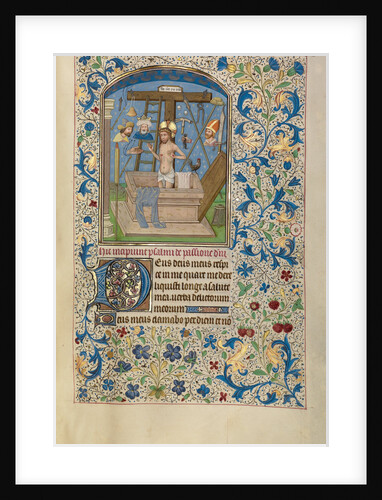 Hic incipiunt psalmi de passione dni
Deus deus meus respi
ce in me quare me dere
liquisti longe a salute
mea verba delictorum
meorum
Deus meus clamabo per diem et nō